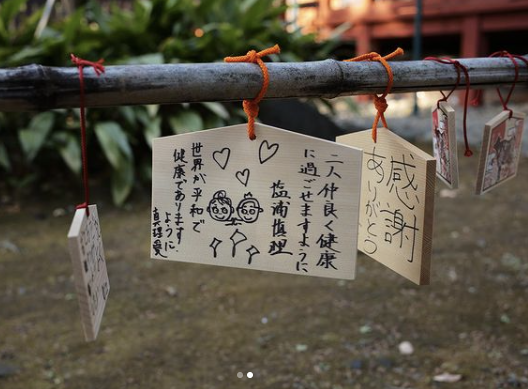 二人仲良く健康
に過ごせますように
塩浦慎理
世界が平和で
健康でありますように
真理愛
感謝
ありがとう